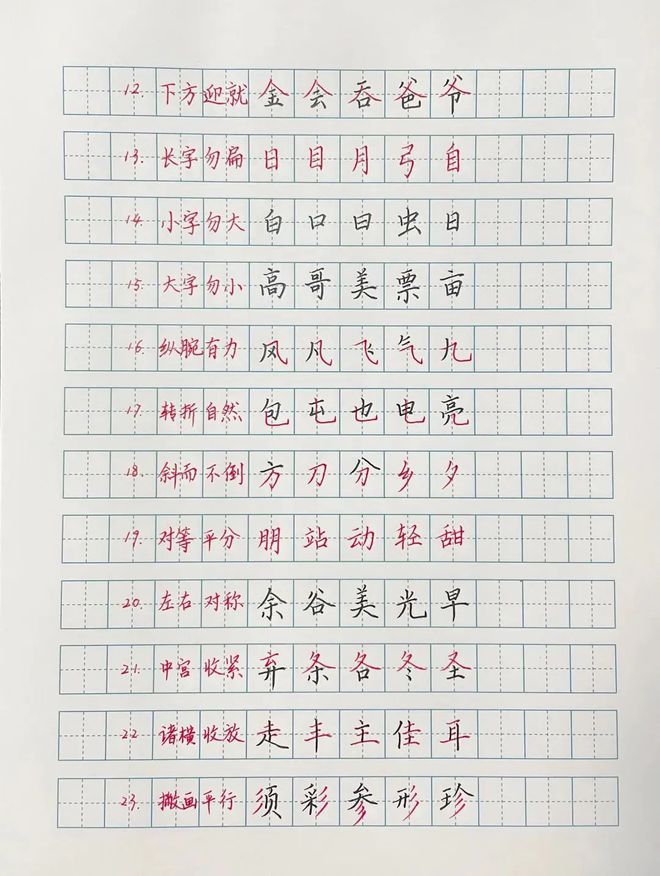 12 下方迎就 金会吞爸爷
13. 长字勿扁 日目月弓自
14 小字勿大 白口曰虫日
15. 大字勿小 高哥美票亩
16. 纵腕有力 风凡飞气九
17. 转折自然 包屯也电亮
18. 斜而不倒 方刀分乡夕
19. 对等平分 朋站动轻甜
20. 左右对称 余谷美光早
21. 中宫收紧 弃条各冬圣
22 诸横收放 走丰主佳耳
23. 撇画平行 须彩参形珍